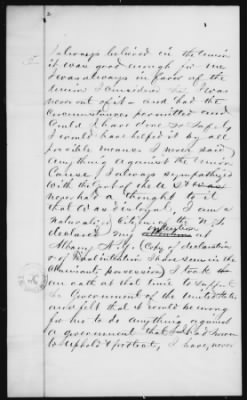 2
I always believed in the Union
it was good enough for me
I was always in favor of the
Union I considered that I was
never out of it - and had the
Circumstances permitted and
Could I have done so safely
I would have helped it by all
possible means I never said
anything against the Union
Cause, I always sympathized
with the govt of the U S
never had a thought to it
that was disloyal, I am a
Naturalized Citizen of the U.S.
declared my intention at
Albany N.Y. (Copy of declaration
& of Naturalization I have seen in the
Claimants possession) I took
an oath at that time to support
the Government of the United States
and felt that it would be wrong
for me to do anything against
a government that I had sworn
to uphold & protect, I have never